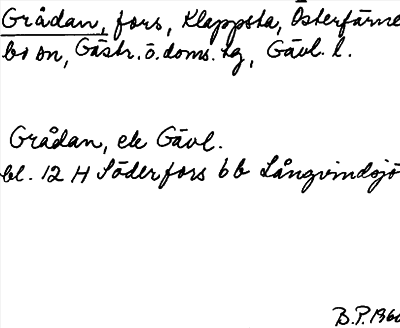 Grådan, fors, Klappsta, Österfärne
bo sn, Gästr. ö. doms. sg, Gävl. l.
Grådan, ek Gävl.
bl. 12 H Söderfors 6 b Långvindsjö
B.P. 1960